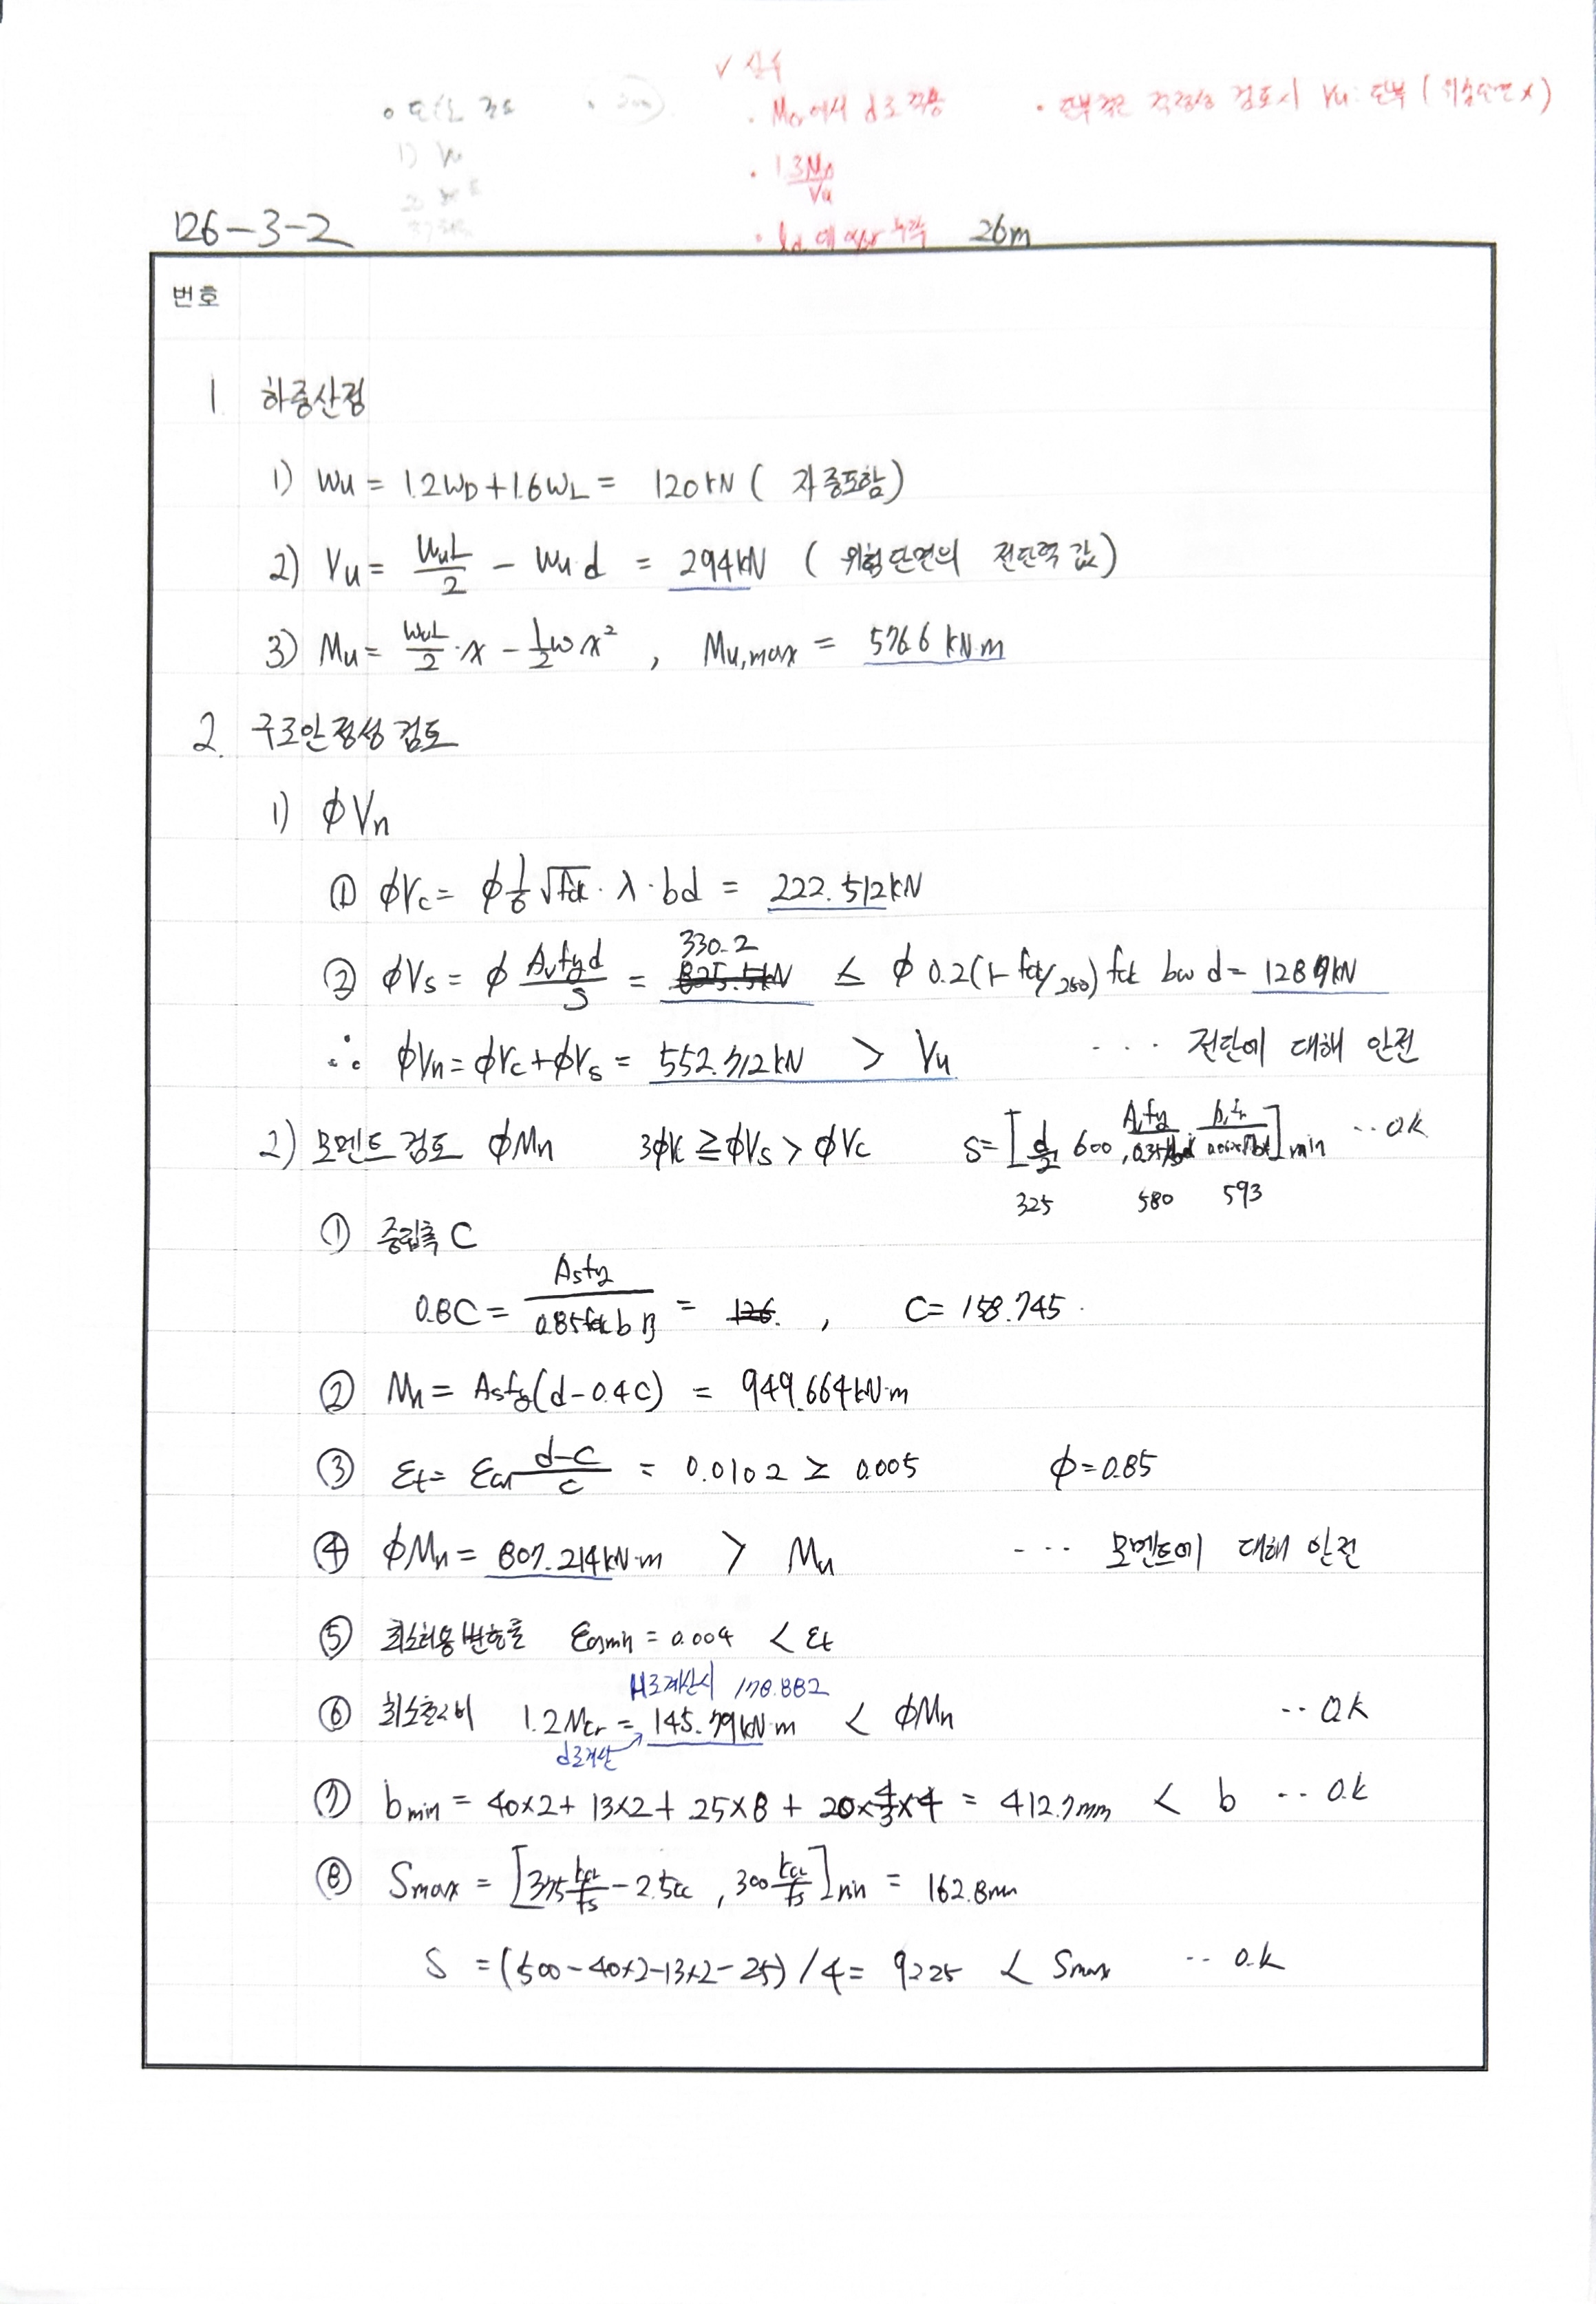 ✓ 실수
• Mcr에서 d로 적용 • 단부 철근 적정성 검토시 Vu: 단부 (위험단면 x)
• 1.3Mn/Vu
• ld 에 누락
126-3-2 26m
번호
1 하중산정
1) Wu = 1.2WD+1.6WL = 120kN ( 자중포함)
2) Vu = WuL/2 - Wu d = 294kN ( 위험단면의 전단력 값)
3) Mu = WuL/2 · x - 1/2 w x² , Mu,max = 576.6 kN.m
2. 구조안정성 검토
1) ϕVn
① ϕVc = ϕ 1/6 √fck · λ · bd = 222.512kN
② ϕVs = ϕ Avfyd/s = 330.2 ≤ ϕ 0.2(1-fck/250) fck bw d = 1289kN
∴ ϕVn = ϕVc+ϕVs = 552.712kN > Vu ... 전단에 대해 안전
2) 모멘트 검토 ϕMn 3ϕVc ≥ ϕVs > ϕVc S= [ d/2 600 , ]min ..ok
325 580 593
① 중립축 C
0.8C = Asfy/0.85fck b = 126. , C= 158.745.
② Mn = Asfy(d-0.4C) = 949.664kN·m
③ εt= εcu d-c/c = 0.0102 ≥ 0.005 ϕ=0.85
④ ϕMn = 807.214kN·m > Mu ... 모멘트에 대해 안전
⑤ 최소허용변형률 εa,min = 0.004 < εt
H로계산시 178.882
⑥ 최소철근비 1.2Mcr = 145.79kN·m < ϕMn .. o.k
d로계산
⑦ bmin = 40×2+ 13×2+ 25×8 + 20×4/3×4 = 412.7mm < b .. o.k
⑧ Smax = [375 kcr/fs - 2.5cc , 300 kcr/fs]min = 162.8mm
S = (500-40×2-13×2-25) /4= 92.25 < Smax .. o.k